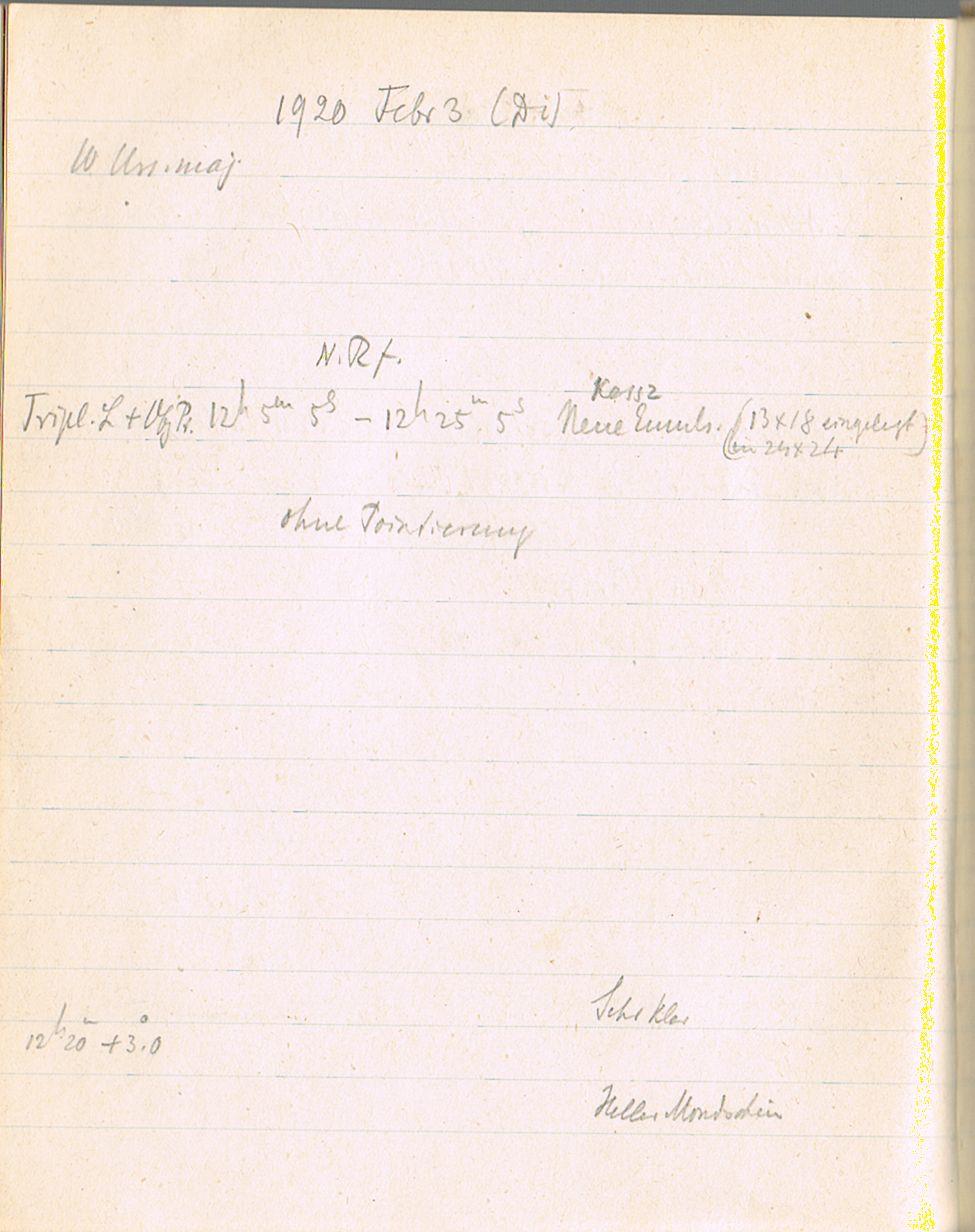 1920 Febr 3 (Di)
W Urs. maj.
N. Rf.
Kass 2
Tripl. L + Obj Pr. 12h 5m 5s – 12h 25m 5s Neue Emuls. (13x18 eingelegt
in 24x24)
ohne Pointierung
Sehr klar
12h 20m +3°.0
Heller Mondschein